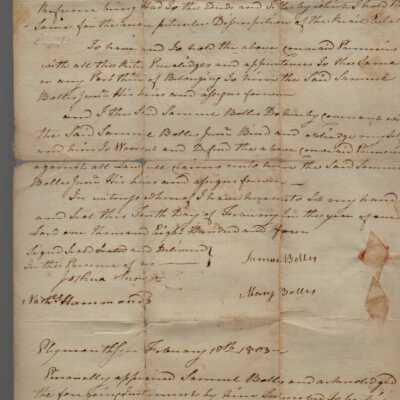 Reference being Had to the Deeds and to the
Same for the more particular Description of the Said
To have and to hold the above
with all the Priveledges and appurtences to the Same
or any Part thereof Belonging to him the Said Samuel
Bolles Junr His heirs and assigns forever
and I the Said Samuel Bolles Do hereby
the Said Samuel Bolles Junr Bind and oblidge myself
and heirs to Warrant and Defend the above
against all Lawful claims unto him the Said Samuel
Bolles Junr His heirs and assigns forever —
In witness whereof I have hereunto Set my hand
and Seal this Tenth Day of Febuary in the year of our
Lord one thousand Eight Hundred and four
Signed Seal and Delivered
In the Presence of us —
Joshua
Samuel Bolles
Nathl Hammond
Mary Bolles
Plymouth Ss Febuary 10th 1803 —
Personally appeared Samuel Bolles and acknowledged
the foregoing Instrument by him